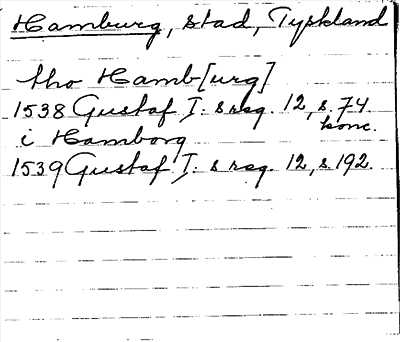 Hamburg, stad, Tyskland
tho Hamb[urg]
1538 Gustaf I:s reg. 12, s. 74
konc.
i Hamborg
1539 Gustaf I:s reg. 12, s. 192.